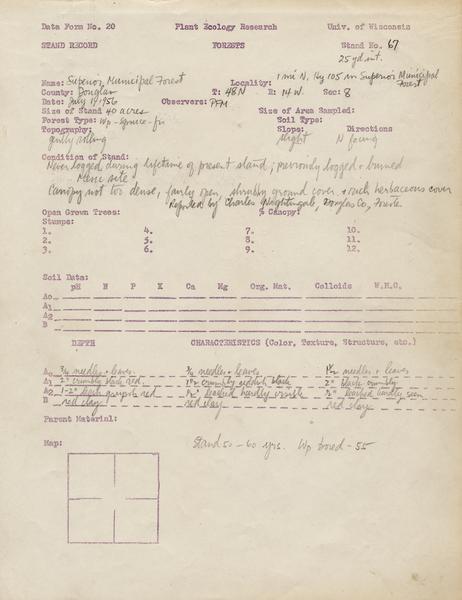 Data Form No. 20 Plant Ecology Research Univ. of Wisconsin
STAND RECORD FORESTS Stand No. 67
25 yd int.
Name: Superior Municipal Forest Locality: 1 mi N. Hy 105 in Superior Municipal Forest
County: Douglas T: 48N R: 14W Sec: 8
Date: July 19 1956 Observers: PFM
Size of Stand 40 acres Size of Area Sampled:
Forest Type: Wp-Spruce-fir Soil Type:
Topography: Slope: Directions
gently rolling slight N facing
Condition of Stand:
Never logged during lifetime of present stand; previously logged + burned
Mesic site.
Canopy not too dense, fairly open, shrubby ground cover + rich herbaceous cover
Reported by Charles Nightingale, Douglas Co, Forester
Open Grown Trees: % Canopy:
Stumps:
1. 4. 7. 10.
2. 5. 8. 11.
3. 6. 9. 12.
Soil Data:
pH N P K Ca Mg Org. Mat. Colloids W.R.C.
Ao
A1
A2
B
DEPTH CHARACTERISTICS (Color, Texture, Structure, etc.)
Ao 3/4 needles + leaves 3/4 needles + leaves 1" needles + leaves
A1 2" crumbly black red. 1" crumbly reddish black 2" black crumbly
A2 1-2" leach red leached hardly visible leached hardly seen
B red clay red clay red clay
Parent Material:
Map: Stand 50-60 yrs. Wp bored - 55